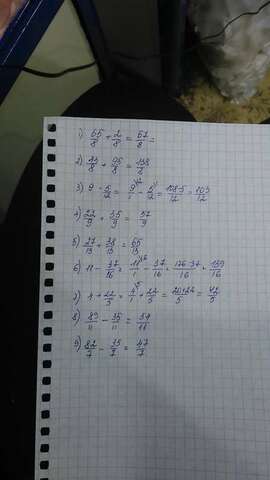 1) 65/8 + 2/8 = 67/8 =
2) 43/8 + 95/8 = 138/8
3) 9 - 5/12 = 9/1 - 5/12 = 108-5/12 = 103/12
4) 22/9 + 35/9 = 57/9
5) 27/13 + 38/13 = 65/13
6) 11 - 37/16 = 11/1 - 37/16 = 176-37/16 = 139/16
7) 4 + 22/5 = 4/1 + 22/5 = 20+22/5 = 42/5
8) 89/11 - 35/11 = 54/11
9) 82/7 - 35/7 = 47/7